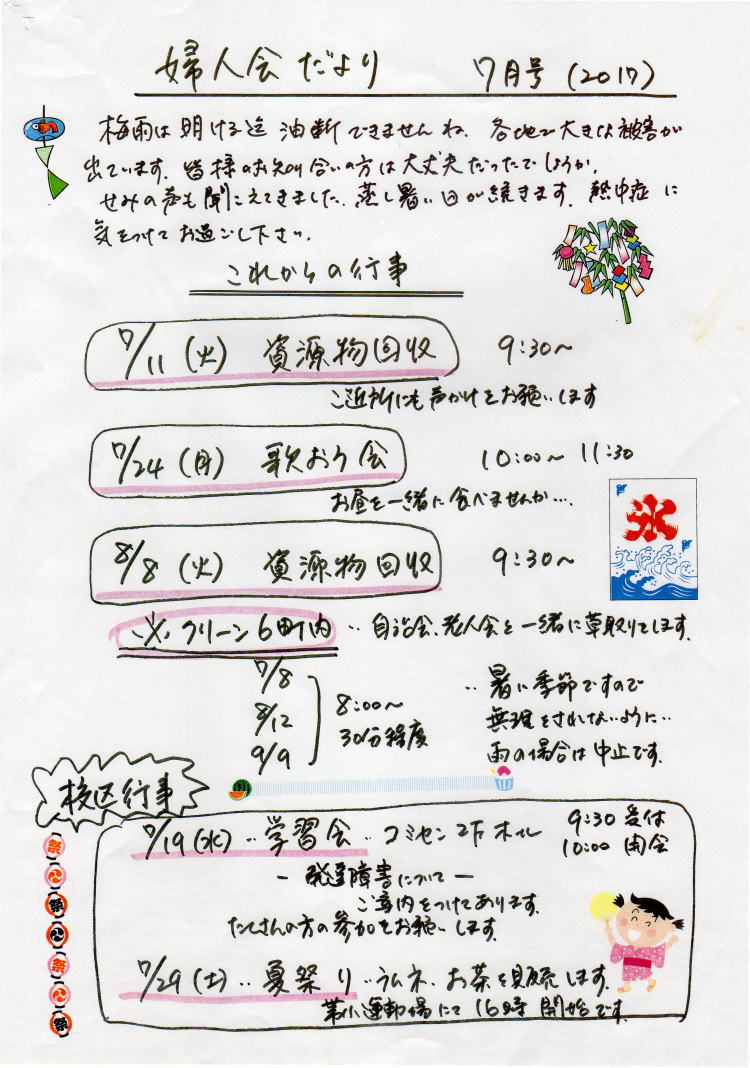 婦人会だより 7月号(2017)
梅雨は明ける迄油断できませんね。各地で大きな被害が
出ています。皆様のお知り合いの方は大丈夫だったでしょうか。
せみの声も聞こえてきました。蒸し暑い日が続きます。熱中症に
気をつけてお過ごし下さい。
これからの行事
7/11(火) 資源物回収 9:30～
ご近所にも声かけをお願いします
7/24(月) 歌おう会 10:00～11:30
お昼を一緒に食べませんか…
氷
8/8(火) 資源物回収 9:30～
※クリーン6町内 ‥自治会、老人会と一緒に草取りをします。
7/8
8/12
9/9
8:00～
30分程度
‥暑い季節ですので
無理をされないように‥
雨の場合は中止です。
校区行事
7/19(水)‥学習会‥コミセン2Fホール 9:30 受付
10:00 開会
－発達障害について－
ご案内をつけてあります。
たくさんの方の参加をお願いします。
7/29(土)‥夏祭り‥ラムネ、お茶を販売します。
第小運動場にて16時開始です。
祭
祭
祭
祭